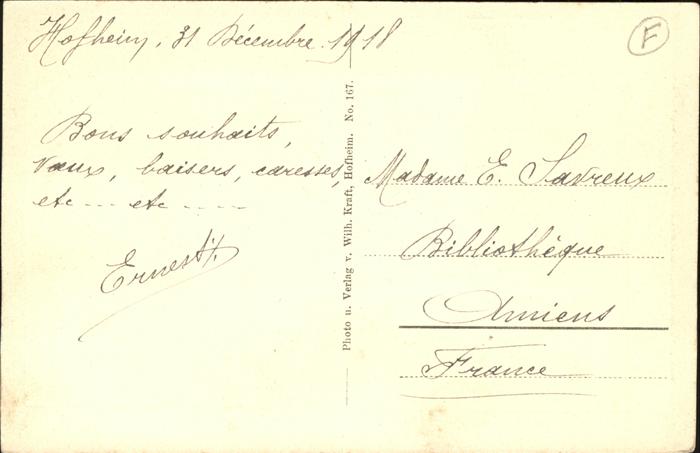 Hofheim, 31 Décembre 1918
F
Bons souhaits,
Vœux, baisers, caresses,
etc ... etc ....
Ernest
Photo u. Verlag v. Wilh. Kraft, Hofheim. No. 167.
Madame E. Savreux
Bibliothèque
Amiens
France